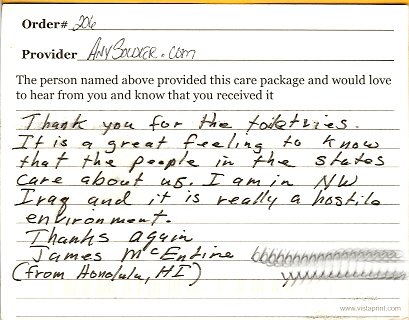 Order# 206
Provider AnySoldier.com
The person named above provided this care package and would love
to hear from you and know that you received it
Thank you for the toiletries.
It is a great feeling to know
that the people in the states
care about us. I am in NW
Iraq and it is really a hostile
environment.
Thanks again
James McEntire
(from Honolulu, HI)
www.vistaprint.com